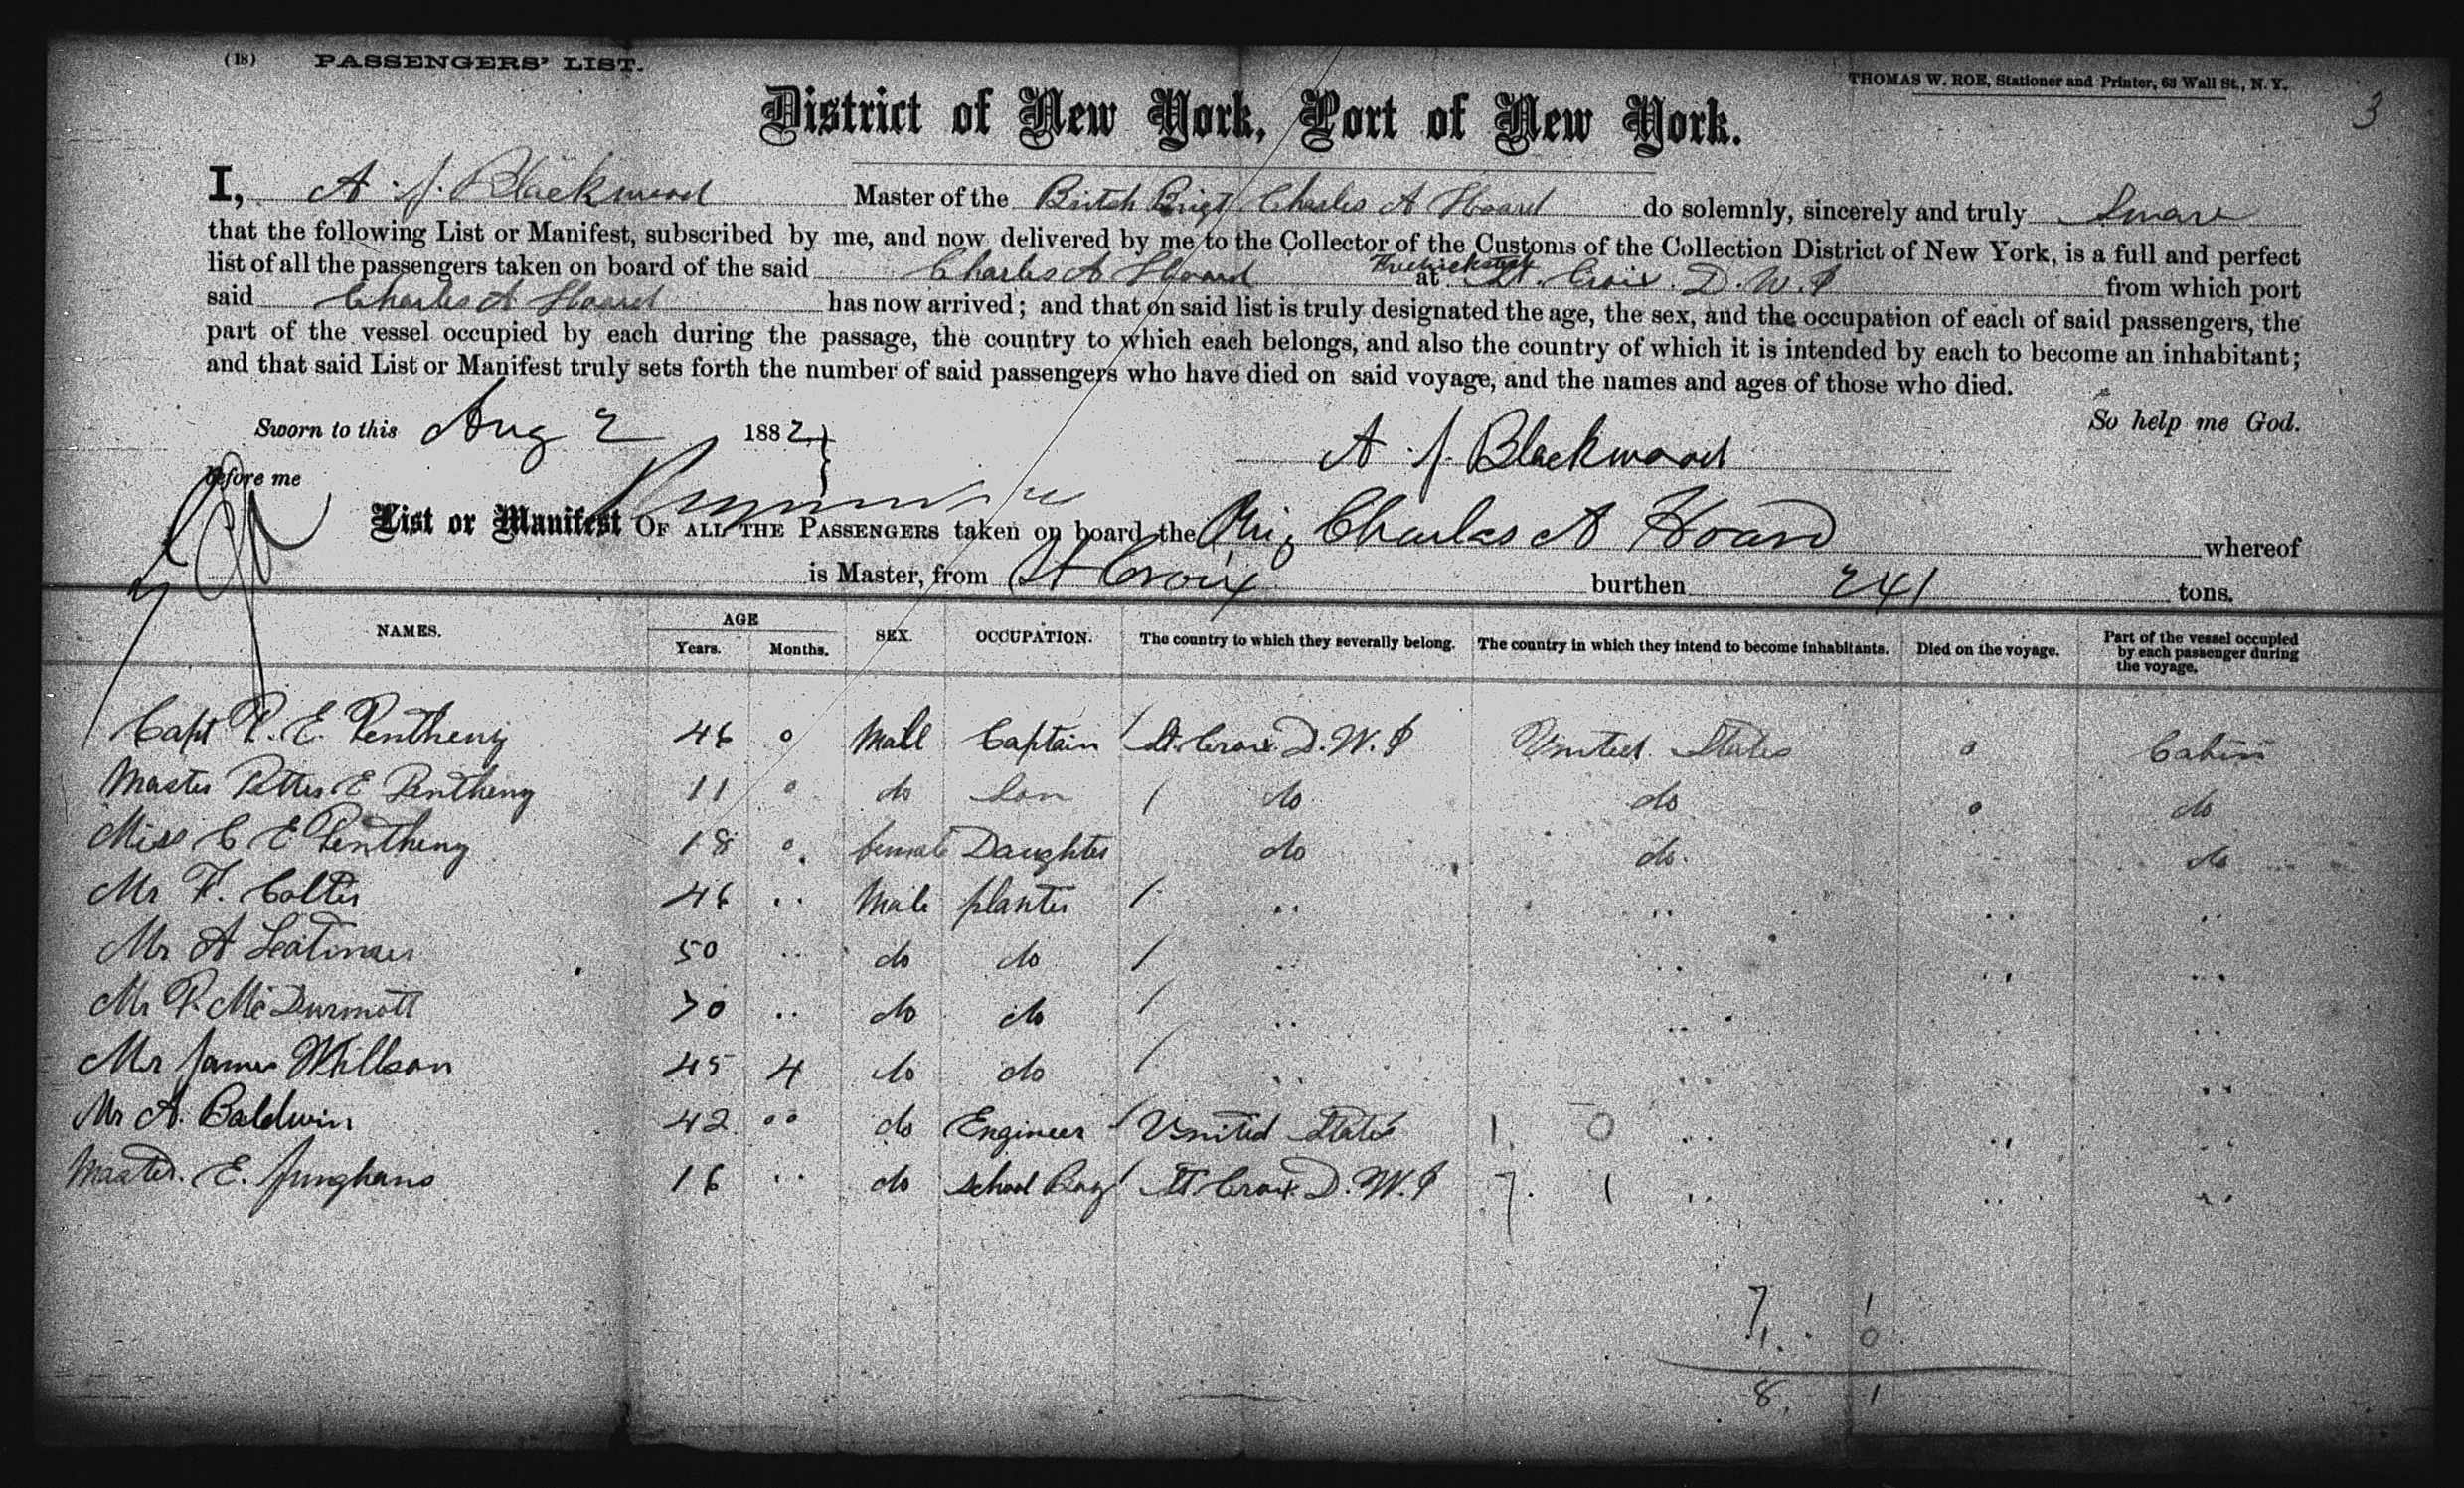 (18) PASSENGERS' LIST.
THOMAS W. ROE, Stationer and Printer, 63 Wall St., N. Y.
3
District of New York, Port of New York.
I, A. J. Blackwood Master of the Britsh Brigt Charles A Hoard do solemnly, sincerely and truly Swear
that the following List or Manifest, subscribed by me, and now delivered by me to the Collector of the Customs of the Collection District of New York, is a full and perfect
list of all the passengers taken on board of the said Charles A Hoard at Fredricksted St. Croix. D. W. I from which port
said Charles A Hoard has now arrived; and that on said list is truly designated the age, the sex, and the occupation of each of said passengers, the
part of the vessel occupied by each during the passage, the country to which each belongs, and also the country of which it is intended by each to become an inhabitant;
and that said List or Manifest truly sets forth the number of said passengers who have died on said voyage, and the names and ages of those who died.
So help me God.
Sworn to this Aug 2 1882 }
A. J. Blackwood
before me
List or Manifest OF ALL THE PASSENGERS taken on board the Brig Charles A Hoard whereof
is Master, from St Croix burthen 241 tons.
NAMES. AGE Years. Months. SEX. OCCUPATION. The country to which they severally belong. The country in which they intend to become inhabitants. Died on the voyage. Part of the vessel occupied by each passenger during the voyage.
Capt P. E. Pentheny 46 0 Male Captain / St. Croix D. W. I United States 0 Cabin
Master Petter E Pentheny 11 0 do Son / do do 0 do
Miss C E Pentheny 18 0. female Daughter do do. do
Mr F. Colter 46 .. Male planter / .. .. .. ..
Mr A 50 .. do do / .. .. .. ..
Mr P. McDurmott 70 .. do do / .. .. ..
Mr James Willson 45 4 do do / .. .. ..
Mr A. Baldwin 42 .. do Engineer / United States 1. 0 .. .. ..
Master. E. Junghans 16 .. do School Boy / St Croix D. W. I 7. 1 .. .. ..
7 1
1. 0
8. 1